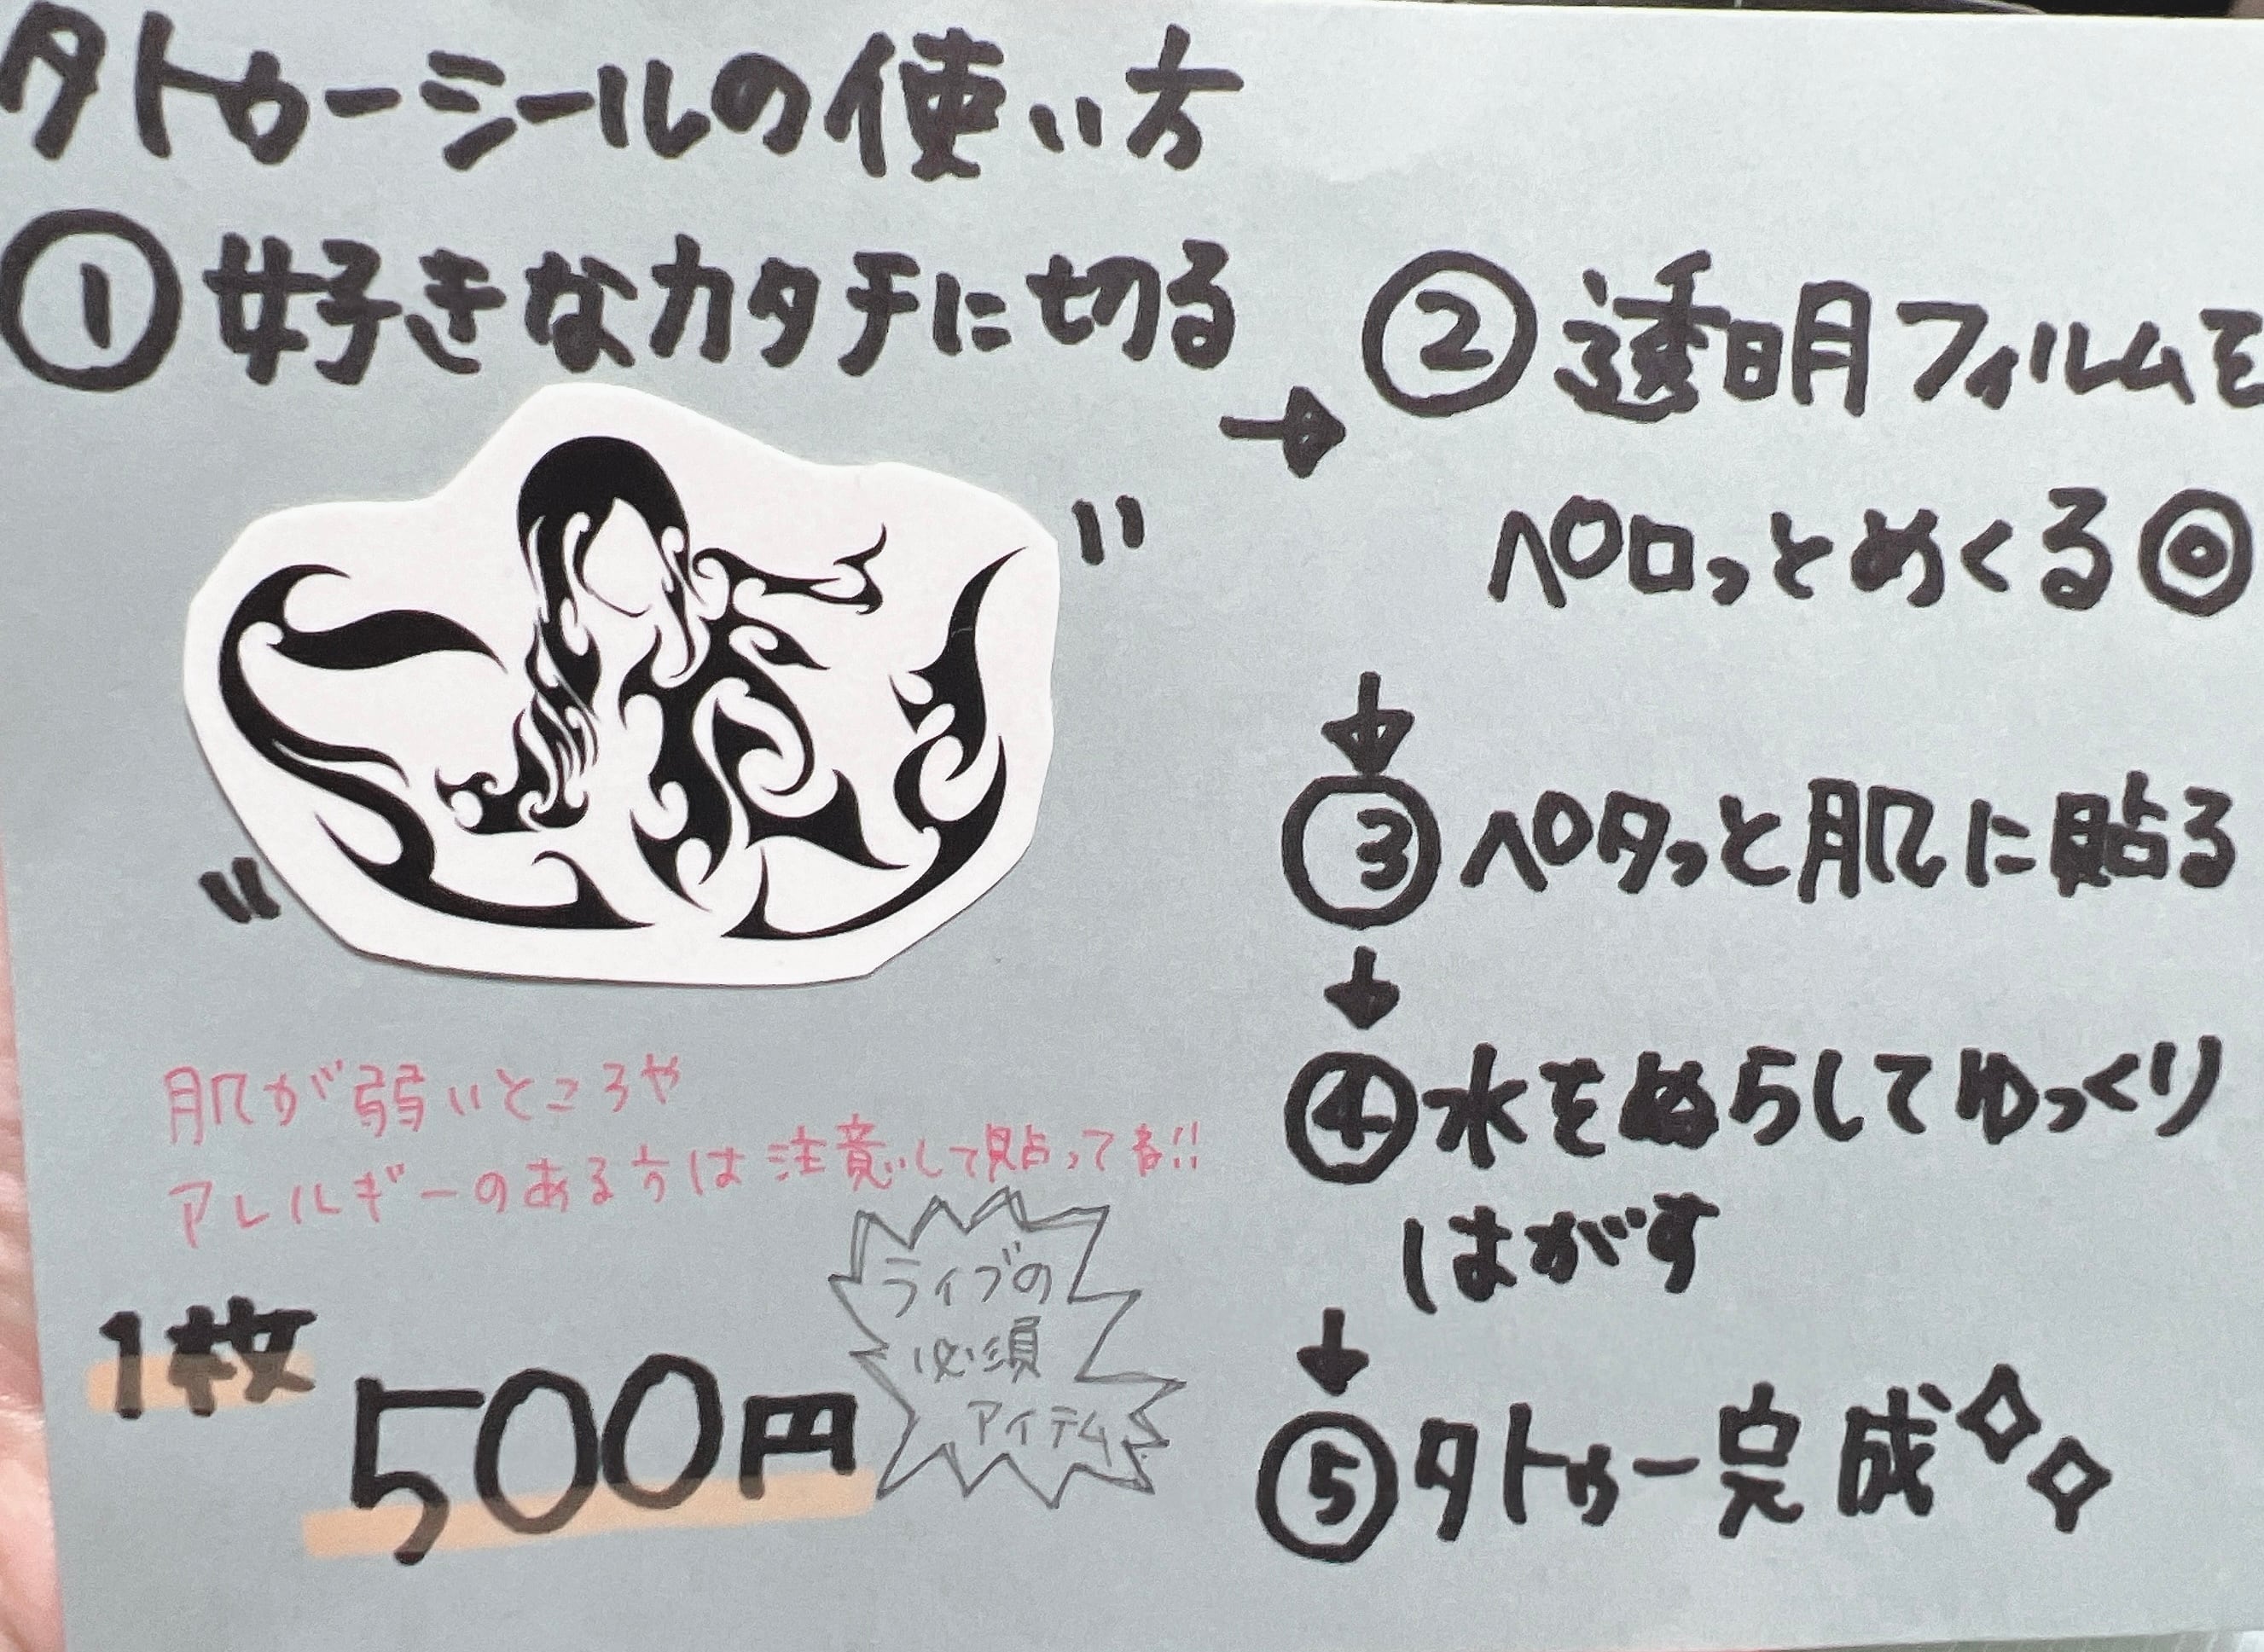 タトゥーシールの使い方
①好きなカタチに切る
→
②透明フィルムを
ペロっとめくる◎
↓
③ペタっと肌に貼る
↓
④水をぬらしてゆっくり
はがす
↓
⑤タトゥー完成
肌が弱いところや
アレルギーのある方は注意して貼ってね!!
1枚
500円
ライブの
必須
アイテム